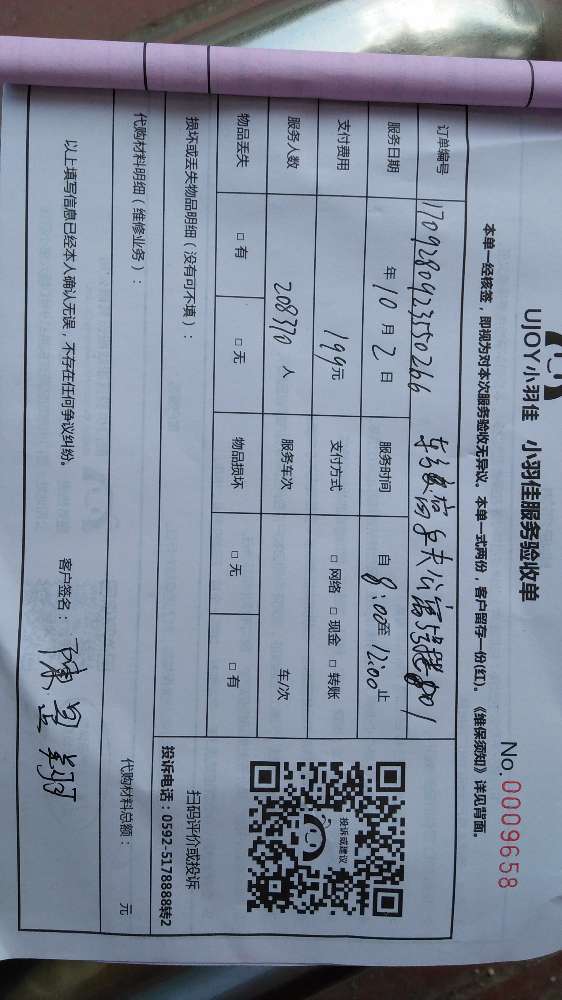 UJOY小羽佳 小羽佳服务验收单
No. 0009658
本单一经核签，即视为对本次服务验收无异议。本单一式两份，客户留存一份(红)。《维保须知》详见背面。
订单编号 170928092355026
服务日期 年 10 月 2 日 服务时间 自 8:00 至 12:00 止
支付费用 199元 支付方式 □ 网络 □ 现金 □ 转账
服务人数 208370 人 服务车次 车/次
物品丢失 □ 有 □ 无 物品损坏 □ 无 □ 有
投诉或建议
扫码评价或投诉
投诉电话：0592-5178888转2
损坏或丢失物品明细（没有可不填）：
代购材料明细（维修业务）： 代购材料总额： 元
以上填写信息已经本人确认无误，不存在任何争议纠纷。 客户签名：